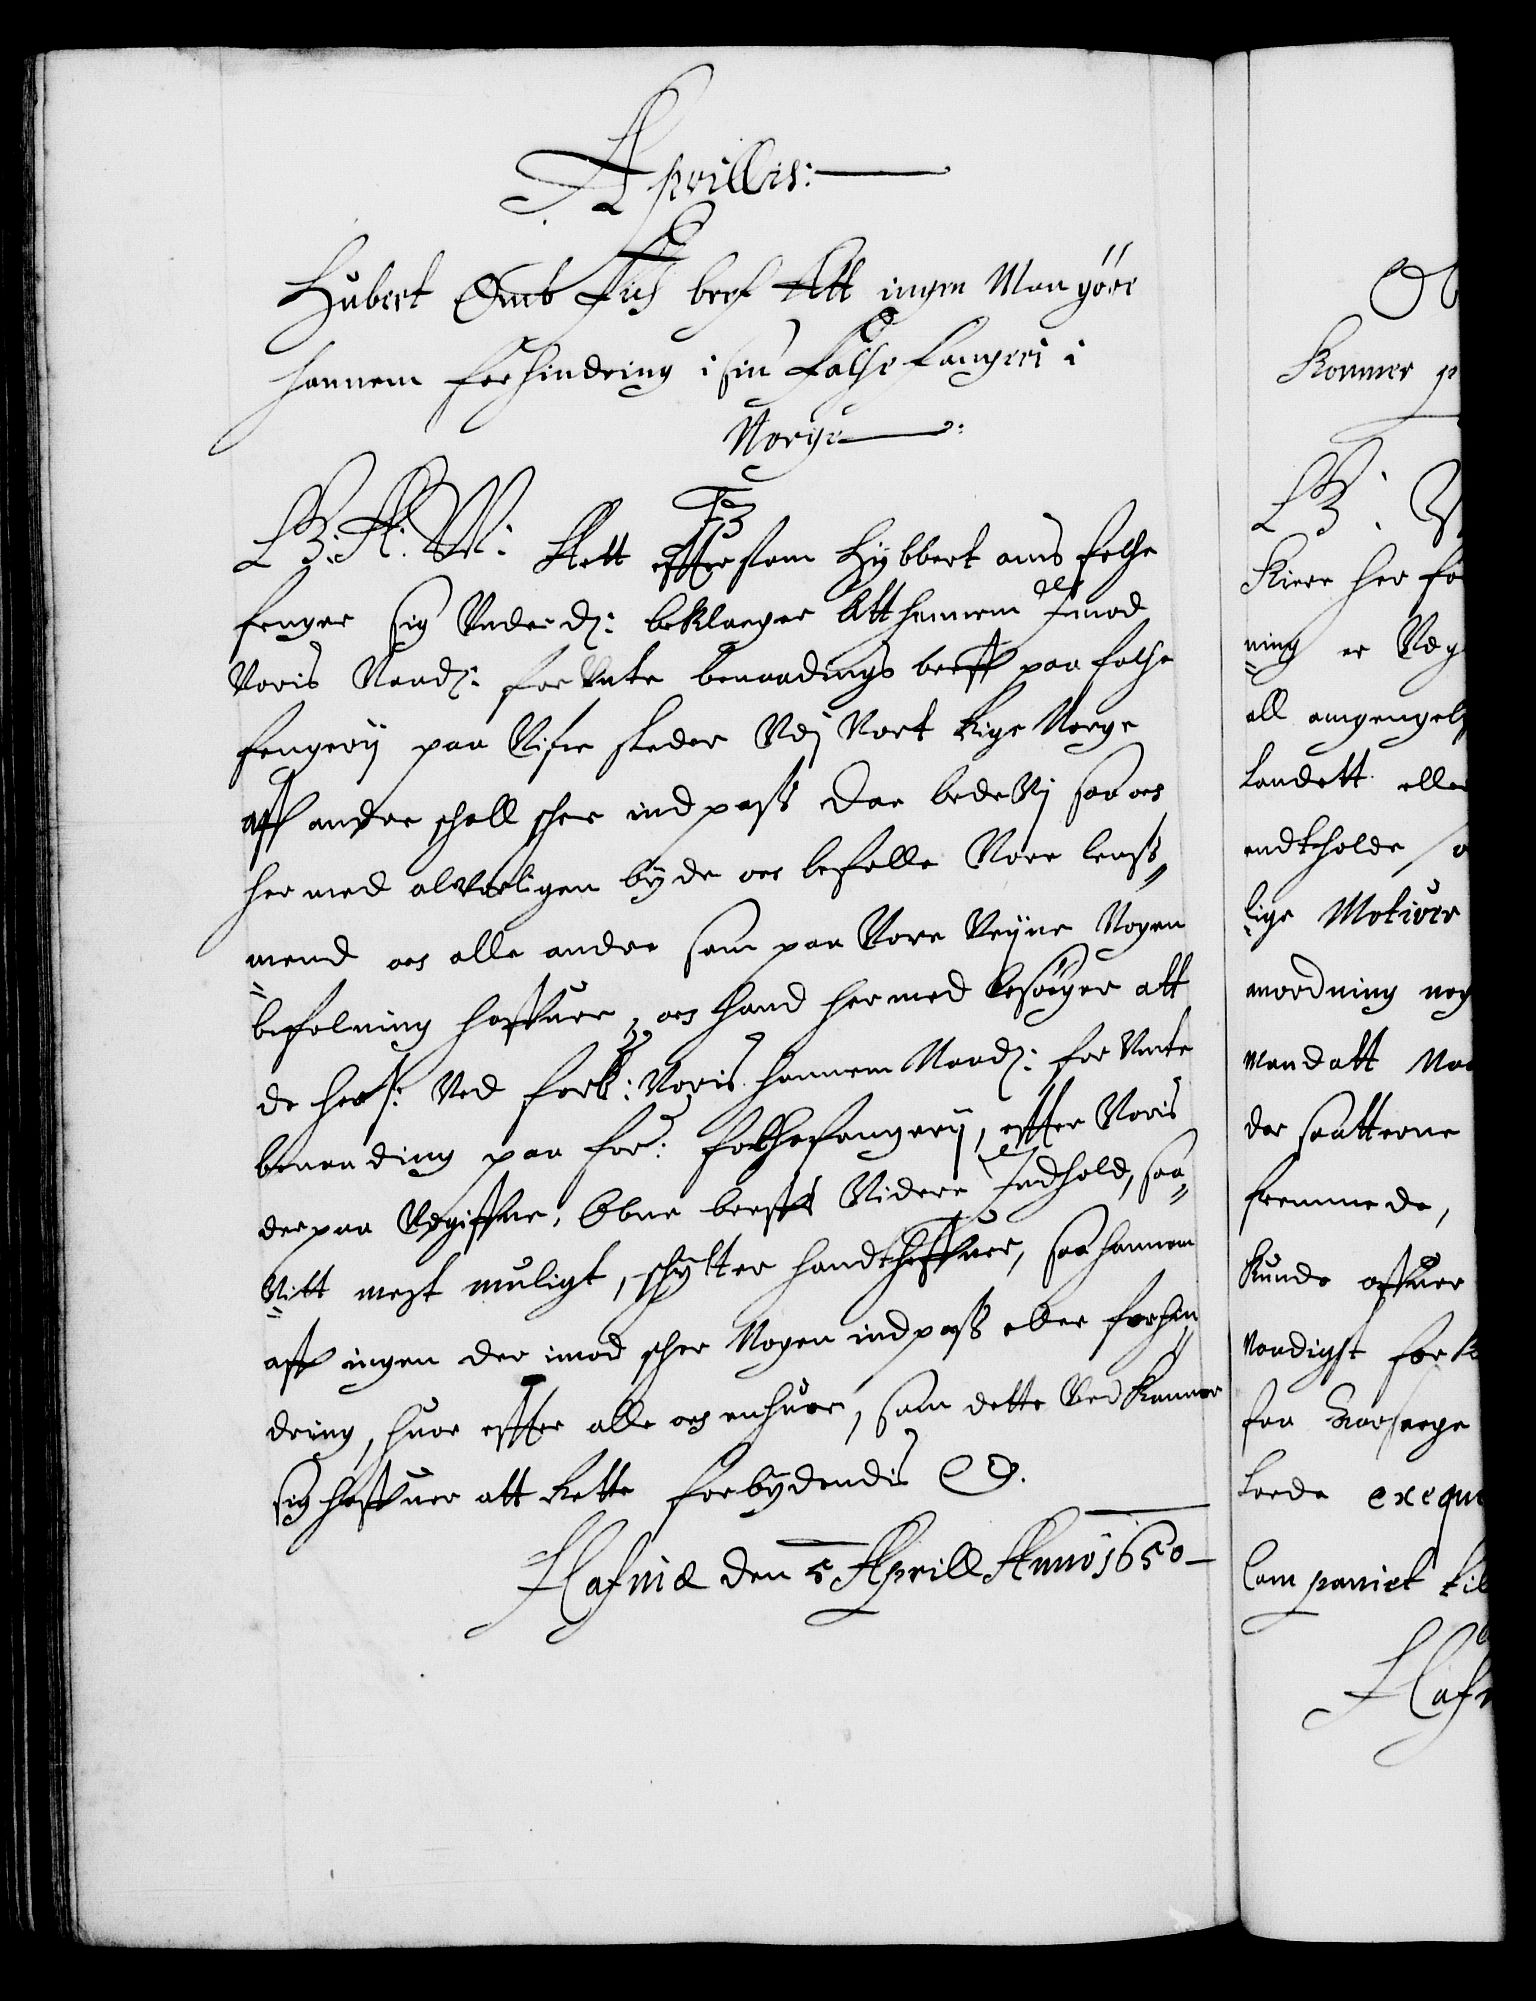 Aprillis:
Hubert Fich bref Att ingen Maa giöre
hannem forhindring i sin Falche fangeri i
Norge
G: A: W: att effter som Hybbert ams felche
fenger sig Underd: beklarger Att hannem Imod
Voris Naad: for Unte benaadings breff paa falche
fengerij paa Visse steder Udj Vort Rige Norge
aff andre schall schee indpass Daa bede Vi saa oc
her med alvorligen byde oc befalle Vore lenss-
mend oc alle andre som paa Vore Veigne Nogen
befalning haffuer, oc hand her med besöger att
de hans: Ved forbe: Voris hannem Naad: for Unte
benaading paa for: falchefangerij, effter Voris
derpaa Udgiffne, Obne breffs Videre Indhold, saa-
vitt mest muligt, schytter handtheffuer, saa hannem
aff ingen der imod scher Nogen indpass eller forhin
dring, huor effter alle oc enhuer, som dette Ved kommer
sig haffuer att Rette forbydendis
Hafniæ den 5 Aprill Anno 1650
Kommer
Kiere her fo
ning er Udg
all omgengel
Landett elle
endtholde
lige Motiver
anordning nog
Mandatt
der saatterne
fremmede,
Kunde offuer
Naadigst for
fra
Lorde exequ
Compagniet til
Hafn